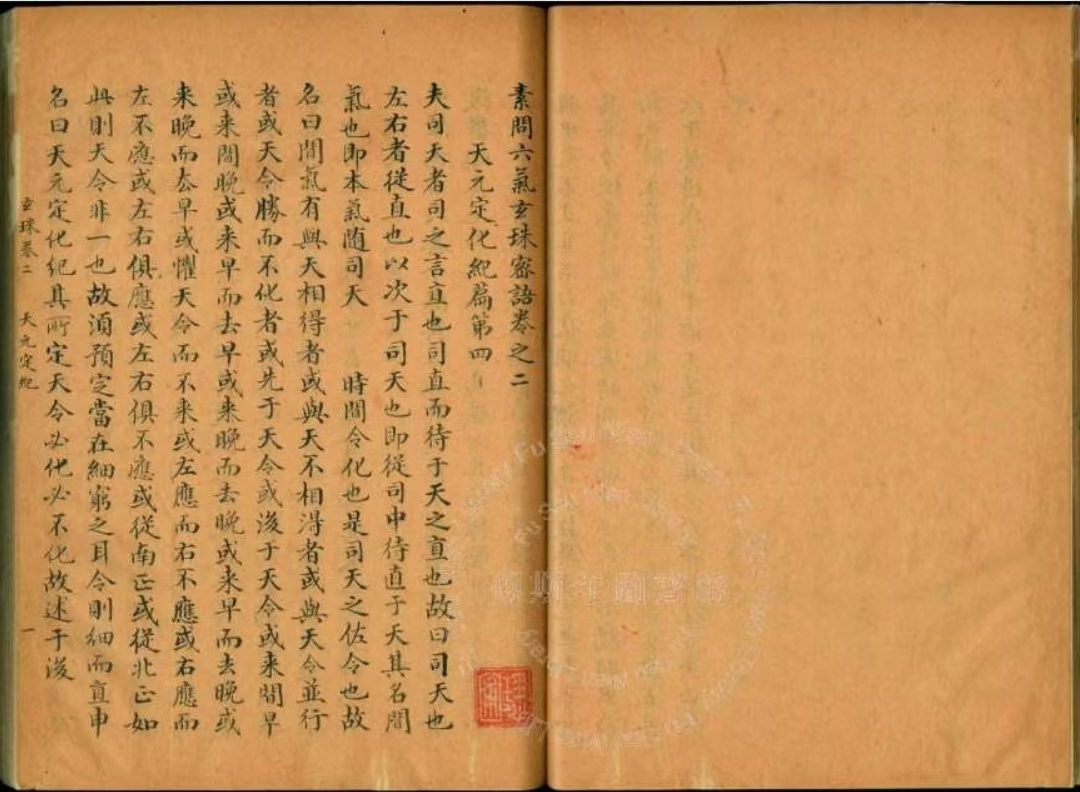 素問六氣玄珠密語卷之二
天元定化紀篇第四
夫司天者司之言直也司直而待于天之直也故曰司天也
左右者從直也以次于司天也即從司申待直于天其名間
氣也即本氣随司天 時間令化也是司天之佐令也故
名曰間氣有與天相得者或與天不相淂者或與天令並行
者或天令勝而不化者或先于天令或後于天令或来間早
或来間晚或来早而去早或来晚而去晚或来早而去晚或
来晚而去早或懼天令而不来或左應而右不應或右應而
左不應或左右俱應或左右俱不應或從南正或從北正如
此則天令非一也故須預定當在細窮之耳令則細而直申
名曰天元定化紀其所定天令必化必不化故述于後
玄珠卷二 天元定紀 一
傅斯年圖書館
Fu Ssu-nien